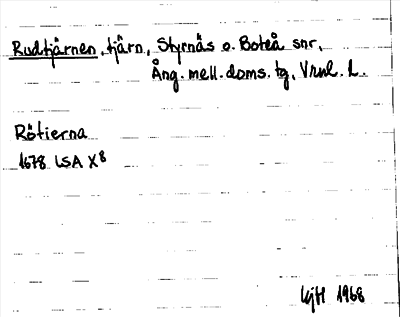 Rudtjärnen, tjärn, Styrnäs o. Boteå snr,
Ång. mell. doms. tg, Vrnl. L.
Rötierna
1678 LSA X8
1968